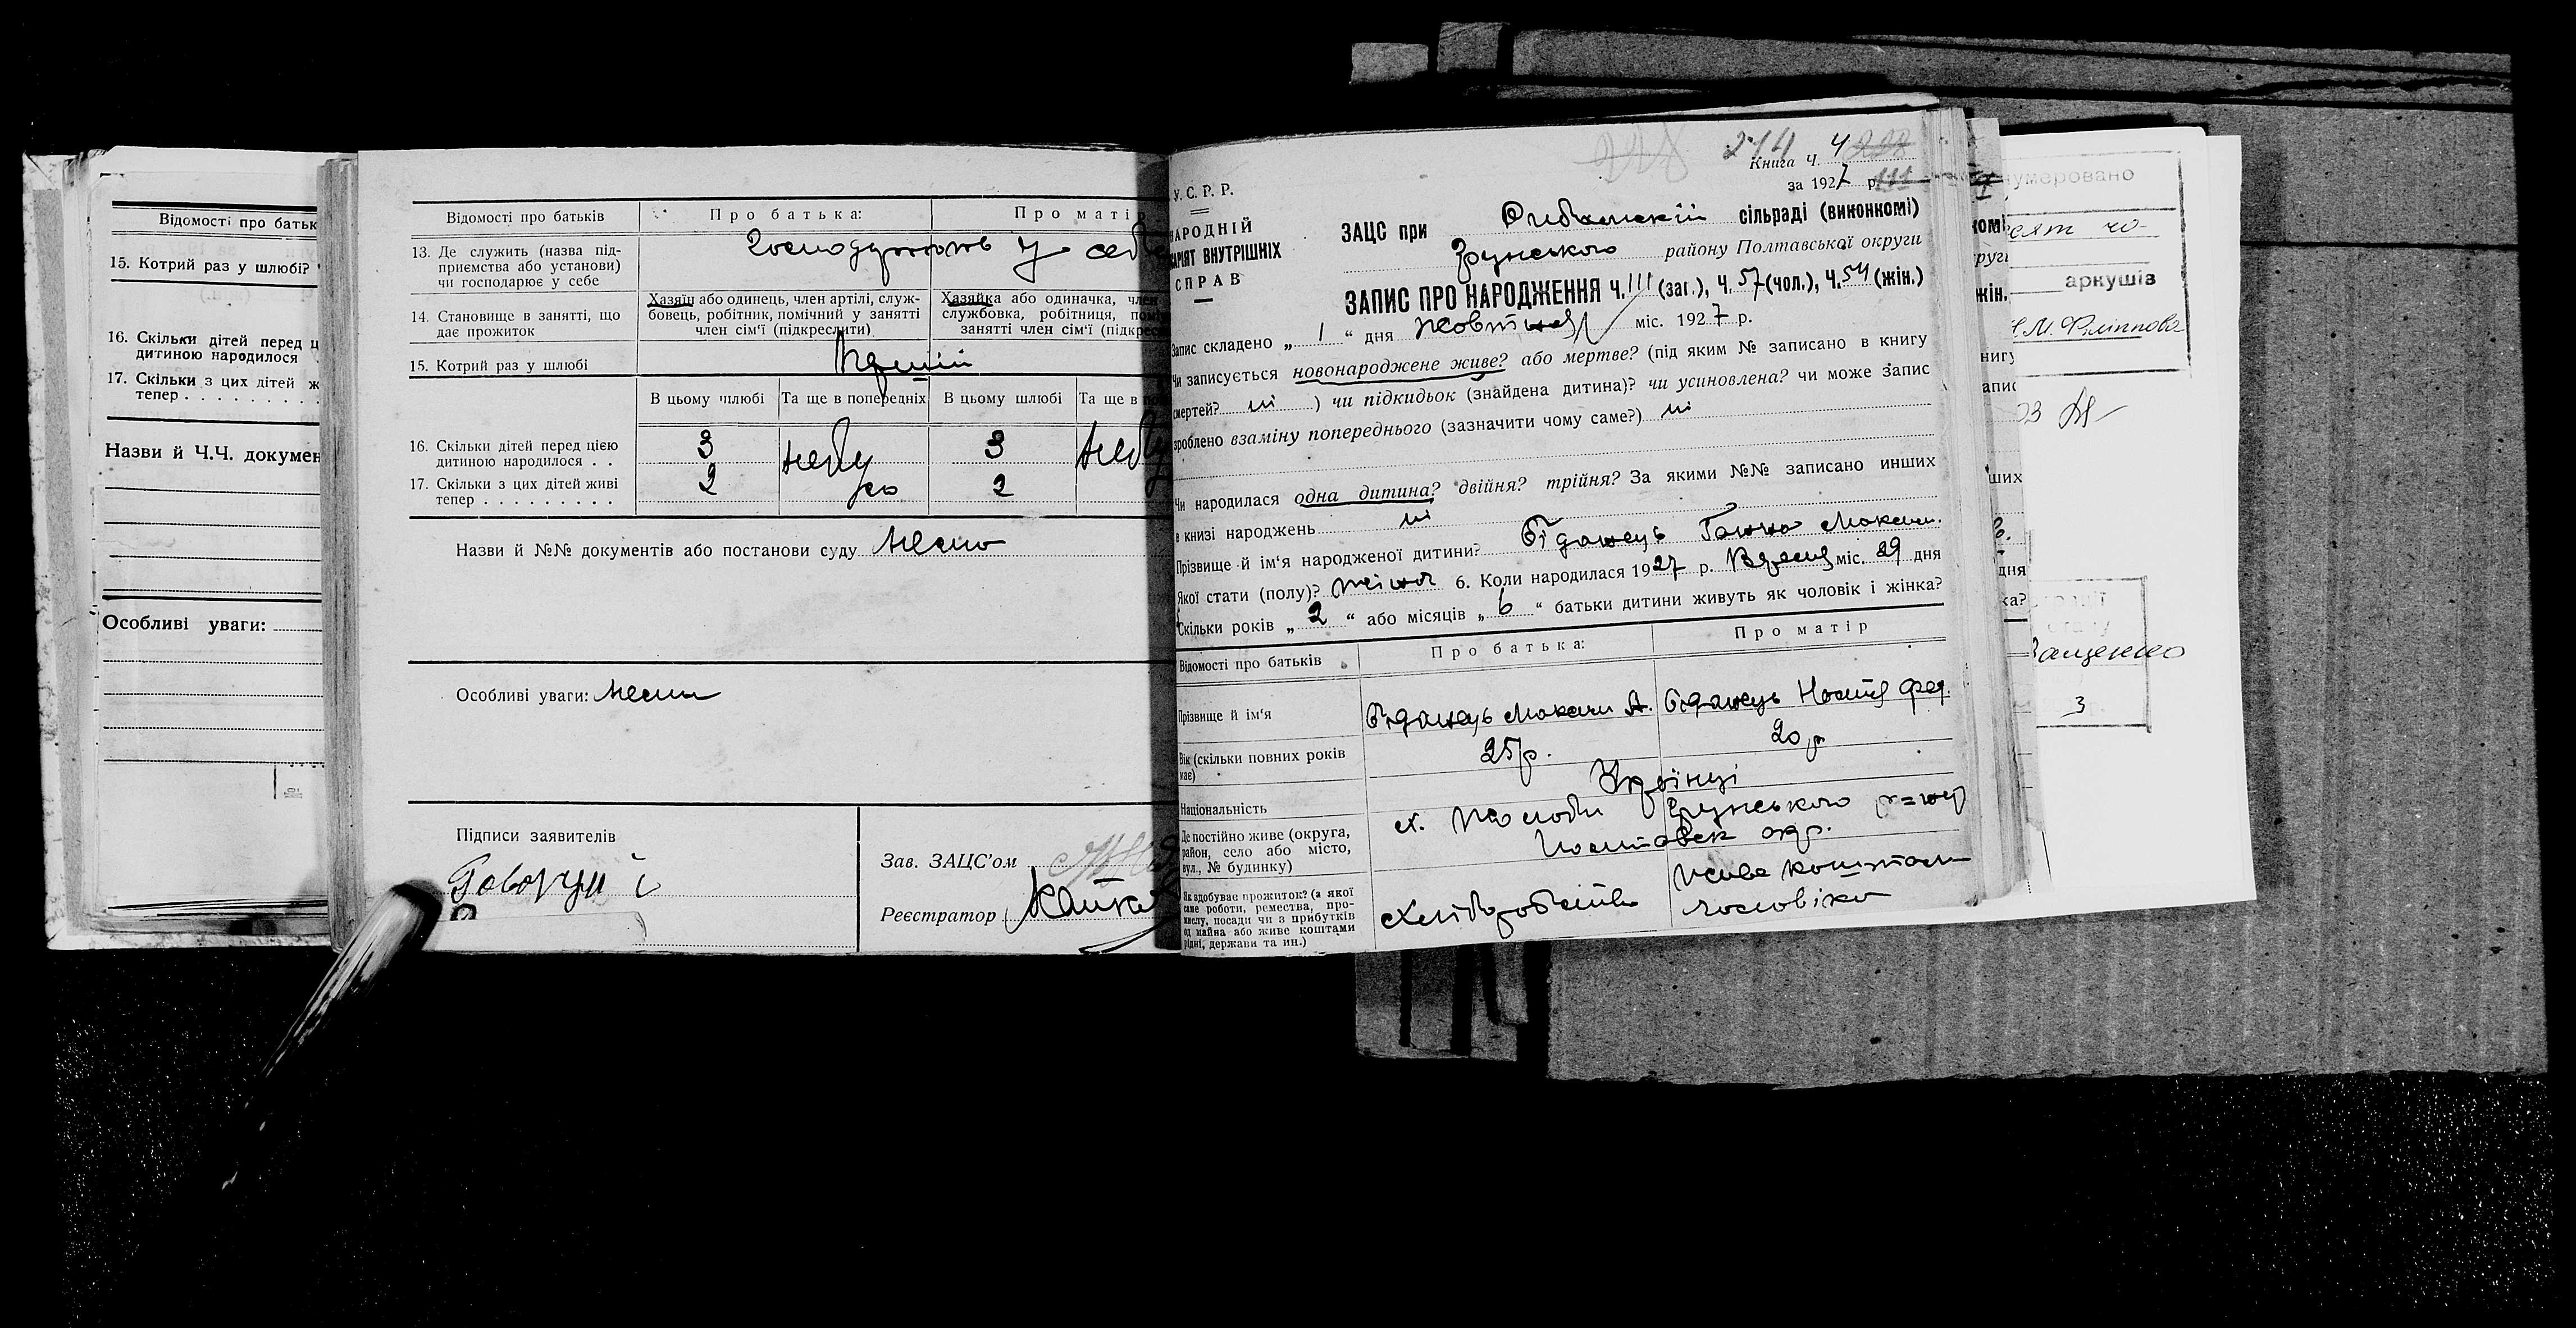 Відомості про батьк
15. Котрий раз у шлюбі?
16. Скільки дітей перед ц
дитиною народилося
17. Скільки з цих дітей ж
тепер . . . . . . . . .
Назви й Ч.Ч. докумен
Особливі уваги:
Відомості про батьків
Про батька:
Про матір
13. Де служить (назва під-
приємства або установи)
чи господарює у себе
Господарюють у себ
14. Становище в занятті, що
дає прожиток
Хазяїн або одинець, член артілі, служ-
бовець, робітник, помічний у занятті
член сім'ї (підкреслити)
Хазяйка або одиначка, член
службовка, робітниця, поміч
занятті член сім'ї (підкрес
15. Котрий раз у шлюбі
Перший
В цьому шлюбі
Та ще в попередніх
В цьому шлюбі
Та ще в по
16. Скільки дітей перед цією
дитиною народилося . .
3
небу
3
небу
17. Скільки з цих дітей живі
тепер . . . . . . . . .
2
ло
2
Назви й №№ документів або постанови суду Нема
Особливі уваги: Нема
Підписи заявителів
Говорун і
Зав. ЗАЦС'ом
Реєстратор
У. С. Р. Р.
НАРОДНІЙ
АРІЯТ ВНУТРІШНІХ
СПРАВ
228
214
Книга Ч. 4
за 1927 р.
ЗАЦС при сільраді (виконкомі)
Грунського району Полтавської округи
ЗАПИС ПРО НАРОДЖЕННЯ Ч. 111 (заг.), Ч. 57 (чол.), Ч. 54 (жін.)
Запис складено „ 1 “ дня Жовтня міс. 1927 р.
Чи записується новонароджене живе? або мертве? (під яким № записано в книгу
смертей? ні ) чи підкидьок (знайдена дитина)? чи усиновлена? чи може запис
зроблено взаміну попереднього (зазначити чому саме?) ні
Чи народилася одна дитина? двійня? трійня? За якими №№ записано инших
в книзі народжень ні
Прізвище й ім'я народженої дитини? Біданець Ганна Максим.
Якої стати (полу)? жіноч 6. Коли народилася 1927 р. Вересня міс. 29 дня
Скільки років „ 2 “ або місяців „ 6 “ батьки дитини живуть як чоловік і жінка?
Відомості про батьків
Про батька:
Про матір
Прізвище й ім'я
Біданець Максим А.
Біданець Настя Фед.
Вік (скільки повних років
має)
25 р.
20 р
Національність
Українці
Де постійно живе (округа,
район, село або місто,
вул., № будинку)
Грунського р=ну
Полтавськ окр.
Як здобуває прожиток? (з якої
саме роботи, ремества, про-
мислу, посади чи з прибутків
од майна або живе коштами
рідні, держави та ин.)
Хліборобство
Живе коштом
чоловіка
комі
руги
жін.
нигу
апис
ших
дня
ка?
нумеровано
аркушів
3